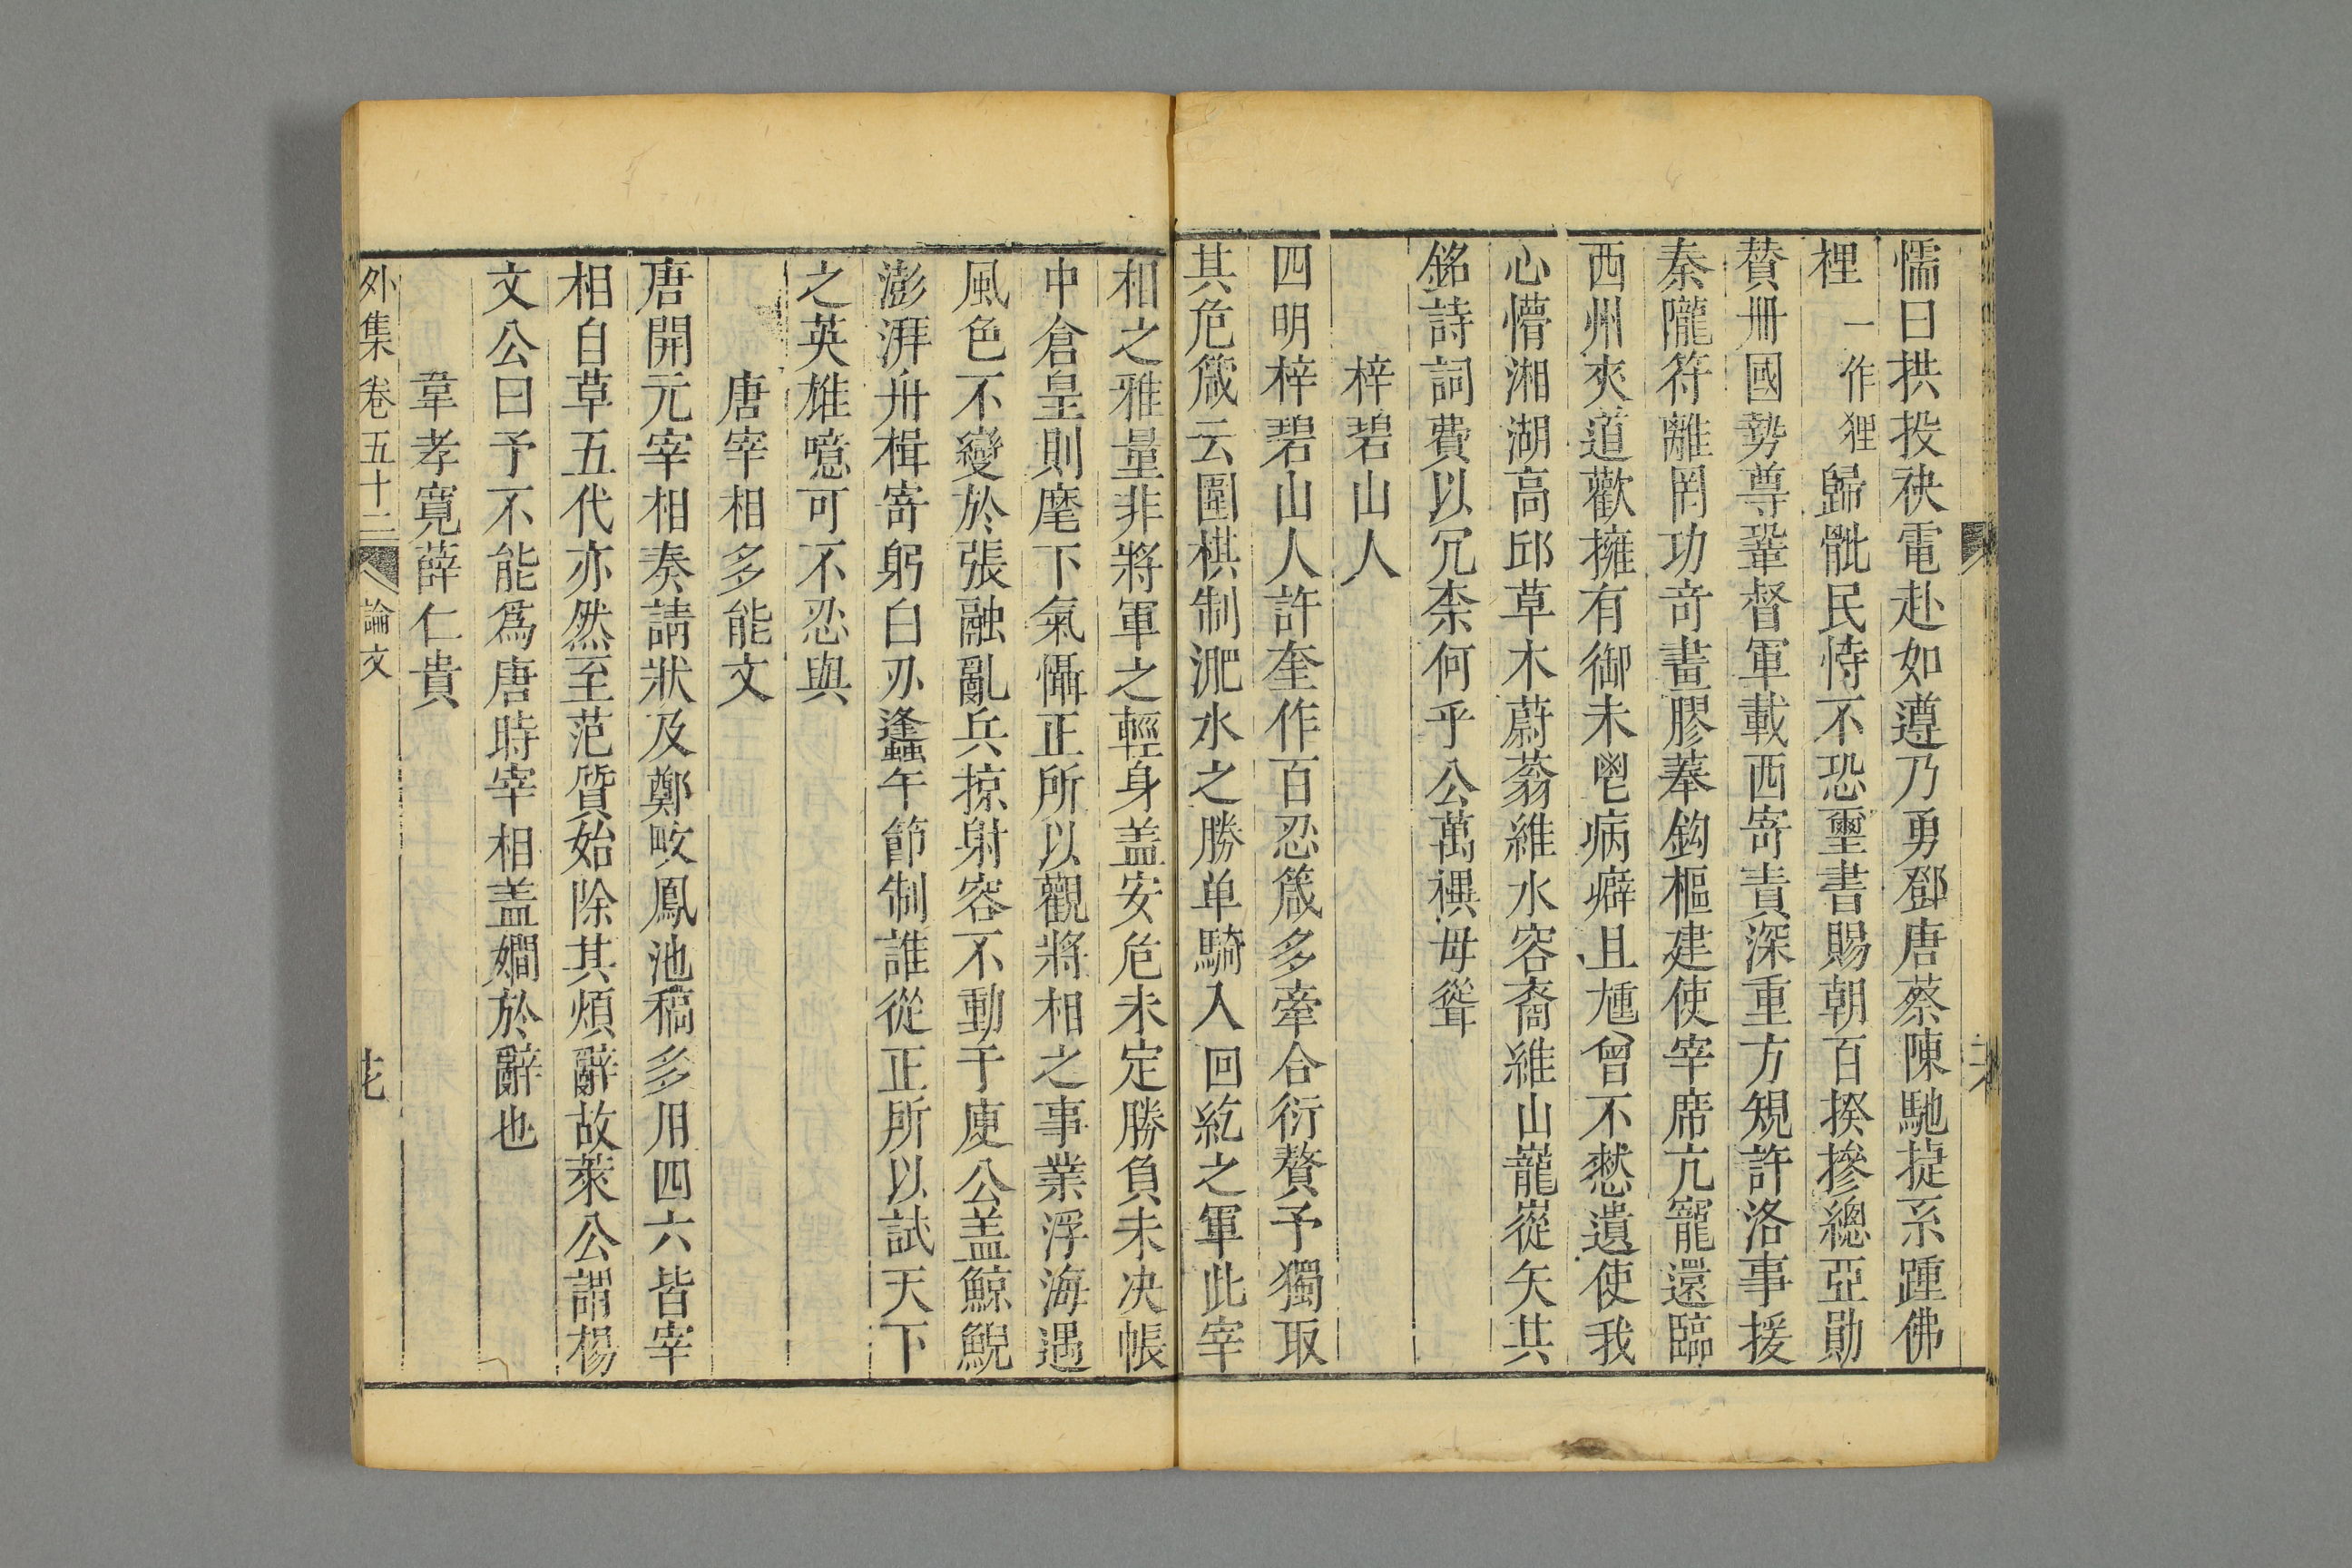 懦曰拱投袂電赴如遵乃勇鄧唐蔡陳馳捷系踵佛
裡一作狸歸骴民恃不恐璽書賜朝百揆摻總亞勛
賛册國勢尊鞏督軍載西寄責深重方規許洛事援
秦隴符離罔功竒畫膠葢鈎樞建使宰席亢寵還臨
西州夾道歡擁有御未鬯病癖且尰曾不憗遺使我
心懵湘湖高邱草木蔚蓊維水容裔維山巃嵸矢共
銘詩詞費以冗柰何乎公萬禩毋聳
梓碧山人
四明梓碧山人許奎作百忍箴多牽合衍贅予獨取
其危箴云圍棋制淝水之勝单騎入回紇之軍此宰
相之雅量非將軍之輕身盖安危未定勝負未决帳
中倉皇則麾下氣懾正所以觀將相之事業浮海遇
風色不變於張融亂兵掠射容不動于庾公盖鯨鯢
澎湃舟楫寄躬白刃蠭午節制誰從正所以試天下
之英雄噫可不忍與
唐宰相多能文
唐開元宰相奏請狀及鄭畋鳳池稿多用四六皆宰
相自草五代亦然至范質始除其煩辭故萊公謂楊
文公曰予不能爲唐時宰相盖嫺於辭也
韋孝寬薛仁貴
外集卷五十二 論文